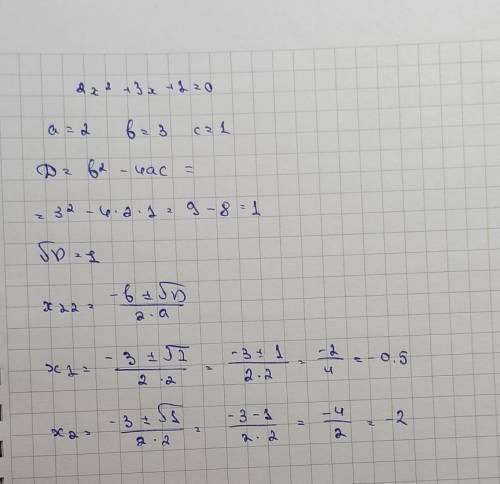 2x² + 3x + 1 = 0
a = 2 b = 3 c = 1
D = b² - 4ac =
= 3² - 4·2·1 = 9 - 8 = 1
√D = 1
x₁₂ = (-b ± √D)/(2·a)
x₁ = (-3 ± √1)/(2·2) = (-3 ± 1)/(2·2) = -2/4 = -0.5
x₂ = (-3 ± √1)/(2·2) = (-3 - 1)/(2·2) = -4/2 = -2